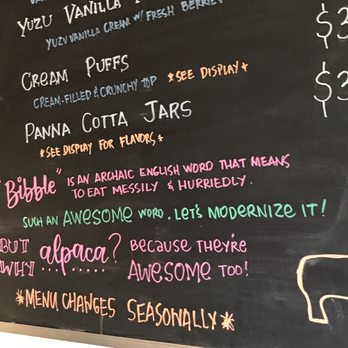 YUZU VANILLA
YUZU VANILLA CREAM W/ FRESH BERRIES
CREAM PUFFS
CREAM-FILLED & CRUNCHY TOP *SEE DISPLAY*
PANNA COTTA JARS
*SEE DISPLAY FOR FLAVORS*
"Bibble" IS AN ARCHAIC ENGLISH WORD THAT MEANS
TO EAT MESSILY & HURRIEDLY.
SUCH AN AWESOME WORD. LET'S MODERNIZE IT!
BUT WHY alpaca? BECAUSE THEY'RE
AWESOME TOO!
*MENU CHANGES SEASONALLY*